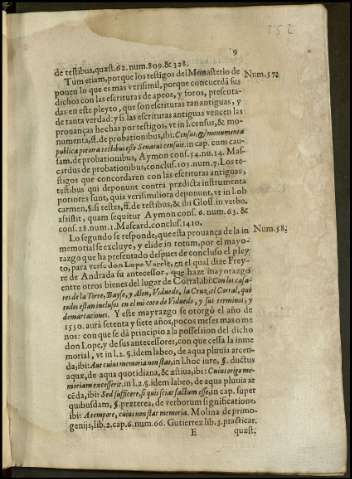 9
de testibus, quæst. 62. num. 809. & 328.
Tum etiam, porque los testigos del Monasterio de Num. 57.
ponen lo que es mas verisimil, porque concuerdã sus
dichos con las escrituras de apeos, y foros, presenta-
das en este pleyto, que son escrituras tan antiguas, y
de tanta verdad: y si las escrituras antiguas vencen las
prouanças hechas por testigos, vt in l. census, & mo-
numenta, ff. de probationibus, ibi: Census, & monumenta
publica potiora testibus esse Senatus censuit. in cap. cum cau-
sam, de probationibus, Aymon cons. 54. nu. 24. Mas-
cardus de probationibus, conclus. 103. num. 7. Los te-
stigos que concordaren con las escrituras antiguas,
testibus qui deponunt contra prædicta instrumenta
potiores sunt, quia verisimiliora deponunt, vt in l. ob
carmen, §. si testes, ff. de testibus, & ibi Gloss. in verbo,
assistit, quam sequitur Aymon cons. 6. num. 63. &
cons. 28. num. 1. Mascard. conclus. 1410.
Lo segundo se responde, que esta prouança de la in Num. 58.
memorial se excluye, y elide in totum, por el mayo-
razgo que ha presentado despues de concluso el pley-
to, para verse don Lope Varela, en el qual dize Frey-
re de Andrade su antecessor, que haze mayorazgo
entre otros bienes del lugar de Corral, ibi: Con los casa-
res de la Torre, Bayso, y Alem, Viduedo, la Cruz, el Corral, que
todos estan inclusos en el mi coto de Viduedo, y sus terminos, y
demarcaciones. Y este mayorazgo se otorgò el año de
1530. aurà setenta y siete años, pocos meses mas ò me
nos: con que se dà principio a la possession del dicho
don Lope, y de sus antecessores, con que cessa la inme
morial, vt in l. 2. §. idem labeo, de aqua pluuia arcen-
da, ibi: Aut cuius memoria non stat, in l. hoc iure, §. ductus
aquæ, de aqua quotidiana, & æstiua, ibi: Cuius origo me-
moriam excessit. in l. 2. §. idem labeo, de aqua pluuia ar
cẽda, ibi: Sed sufficere, si quis sciat factum esse, in cap. super
quibusdam, §. præterea, de verborum significatione,
ibi: A tempore, cuius non stat memoria. Molina de primo-
genijs, lib. 2. cap. 6. num. 66. Gutierrez lib. 3. practicar.
E quæst.